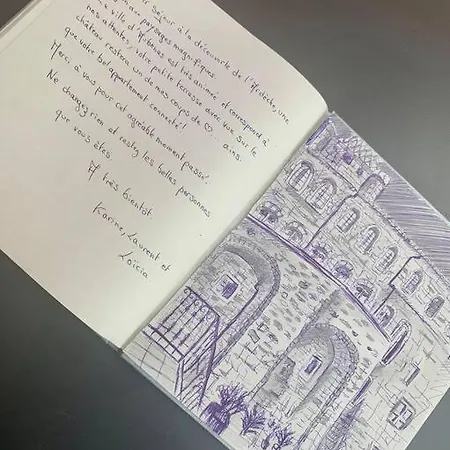 séjour à la découverte de l'Ardèche, une
paysages magnifiques.
ville d'Aubenas est très animée et correspond à
nos attentes, votre petite terrasse avec vue sur le
château restera un de mes coups de ♡... ainsi
que votre bel appartement connecté!
Merci, à vous pour cet agréable moment passé.
Ne changez rien et restez les belles personnes
que vous êtes.
A très bientôt
Karine, Laurent et
Loïcia